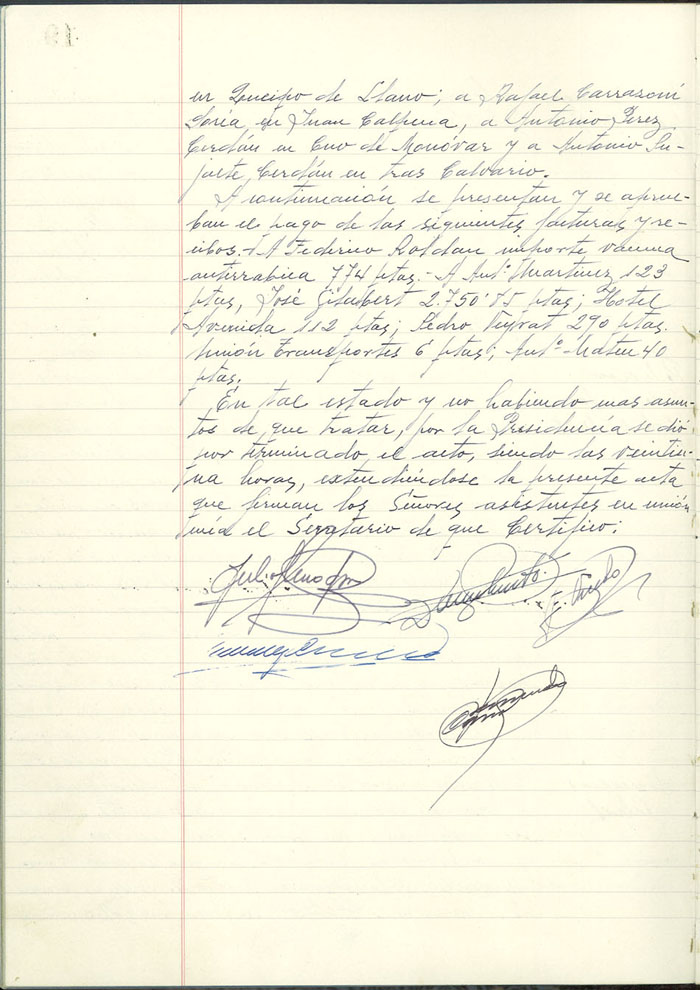 en Queipo de Llano; a Rafael Carrazoní
Soria en Juan Calpena, a Antonio Perez
Cerdán en Cno de Monóvar y a Antonio
Cerdán en tras Calvario.
A continuación se presentan y se aprue-
ban el pago de las siguientes facturas y re-
cibos.- A Federico Roldan importe vacuna
antirrabica 774 ptas.- A Antº Martinez 123
ptas, José Gilabert 2.750'75 ptas; Hotel
Avenida 112 ptas; Pedro Veyrat 290 ptas.
Unión Transportes 6 ptas; Antº Mateu 40
ptas.
En tal estado y no habiendo mas asun-
tos de que tratar, por la Presidencia se dió
por terminado el acto, siendo las veintiu-
na horas, extendiéndose la presente acta
que firman los Señores asistentes en unión
mía el Secretario de que Certifico: